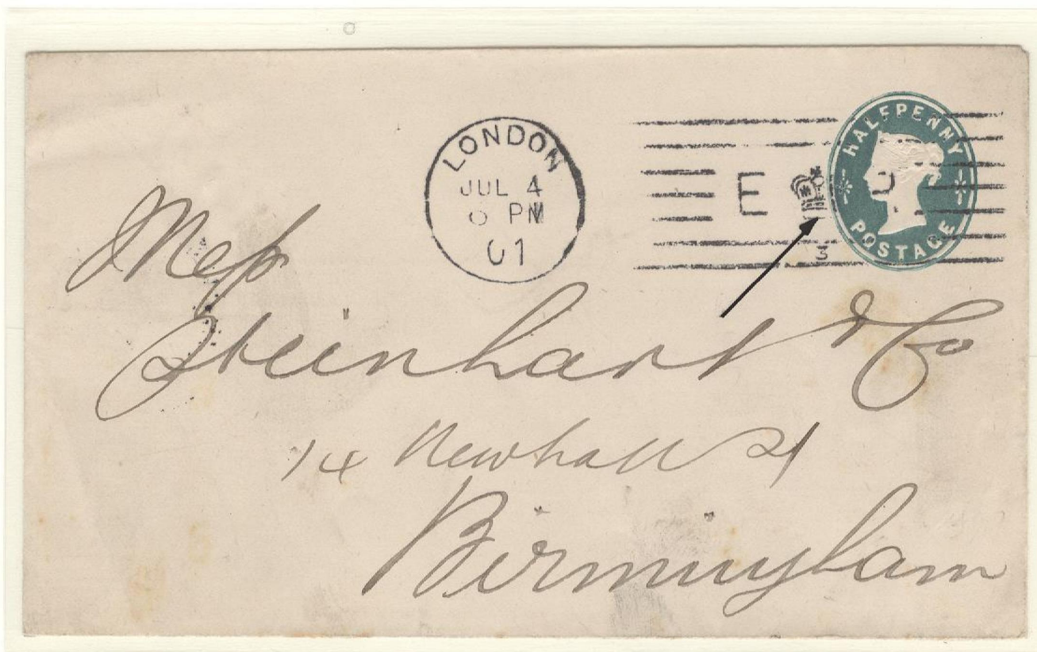 LONDON
JUL 4
6 PM
01
E R
3
HALFPENNY
POSTAGE
Mess
Steinhart & Co
14 Newhall St
Birmingham